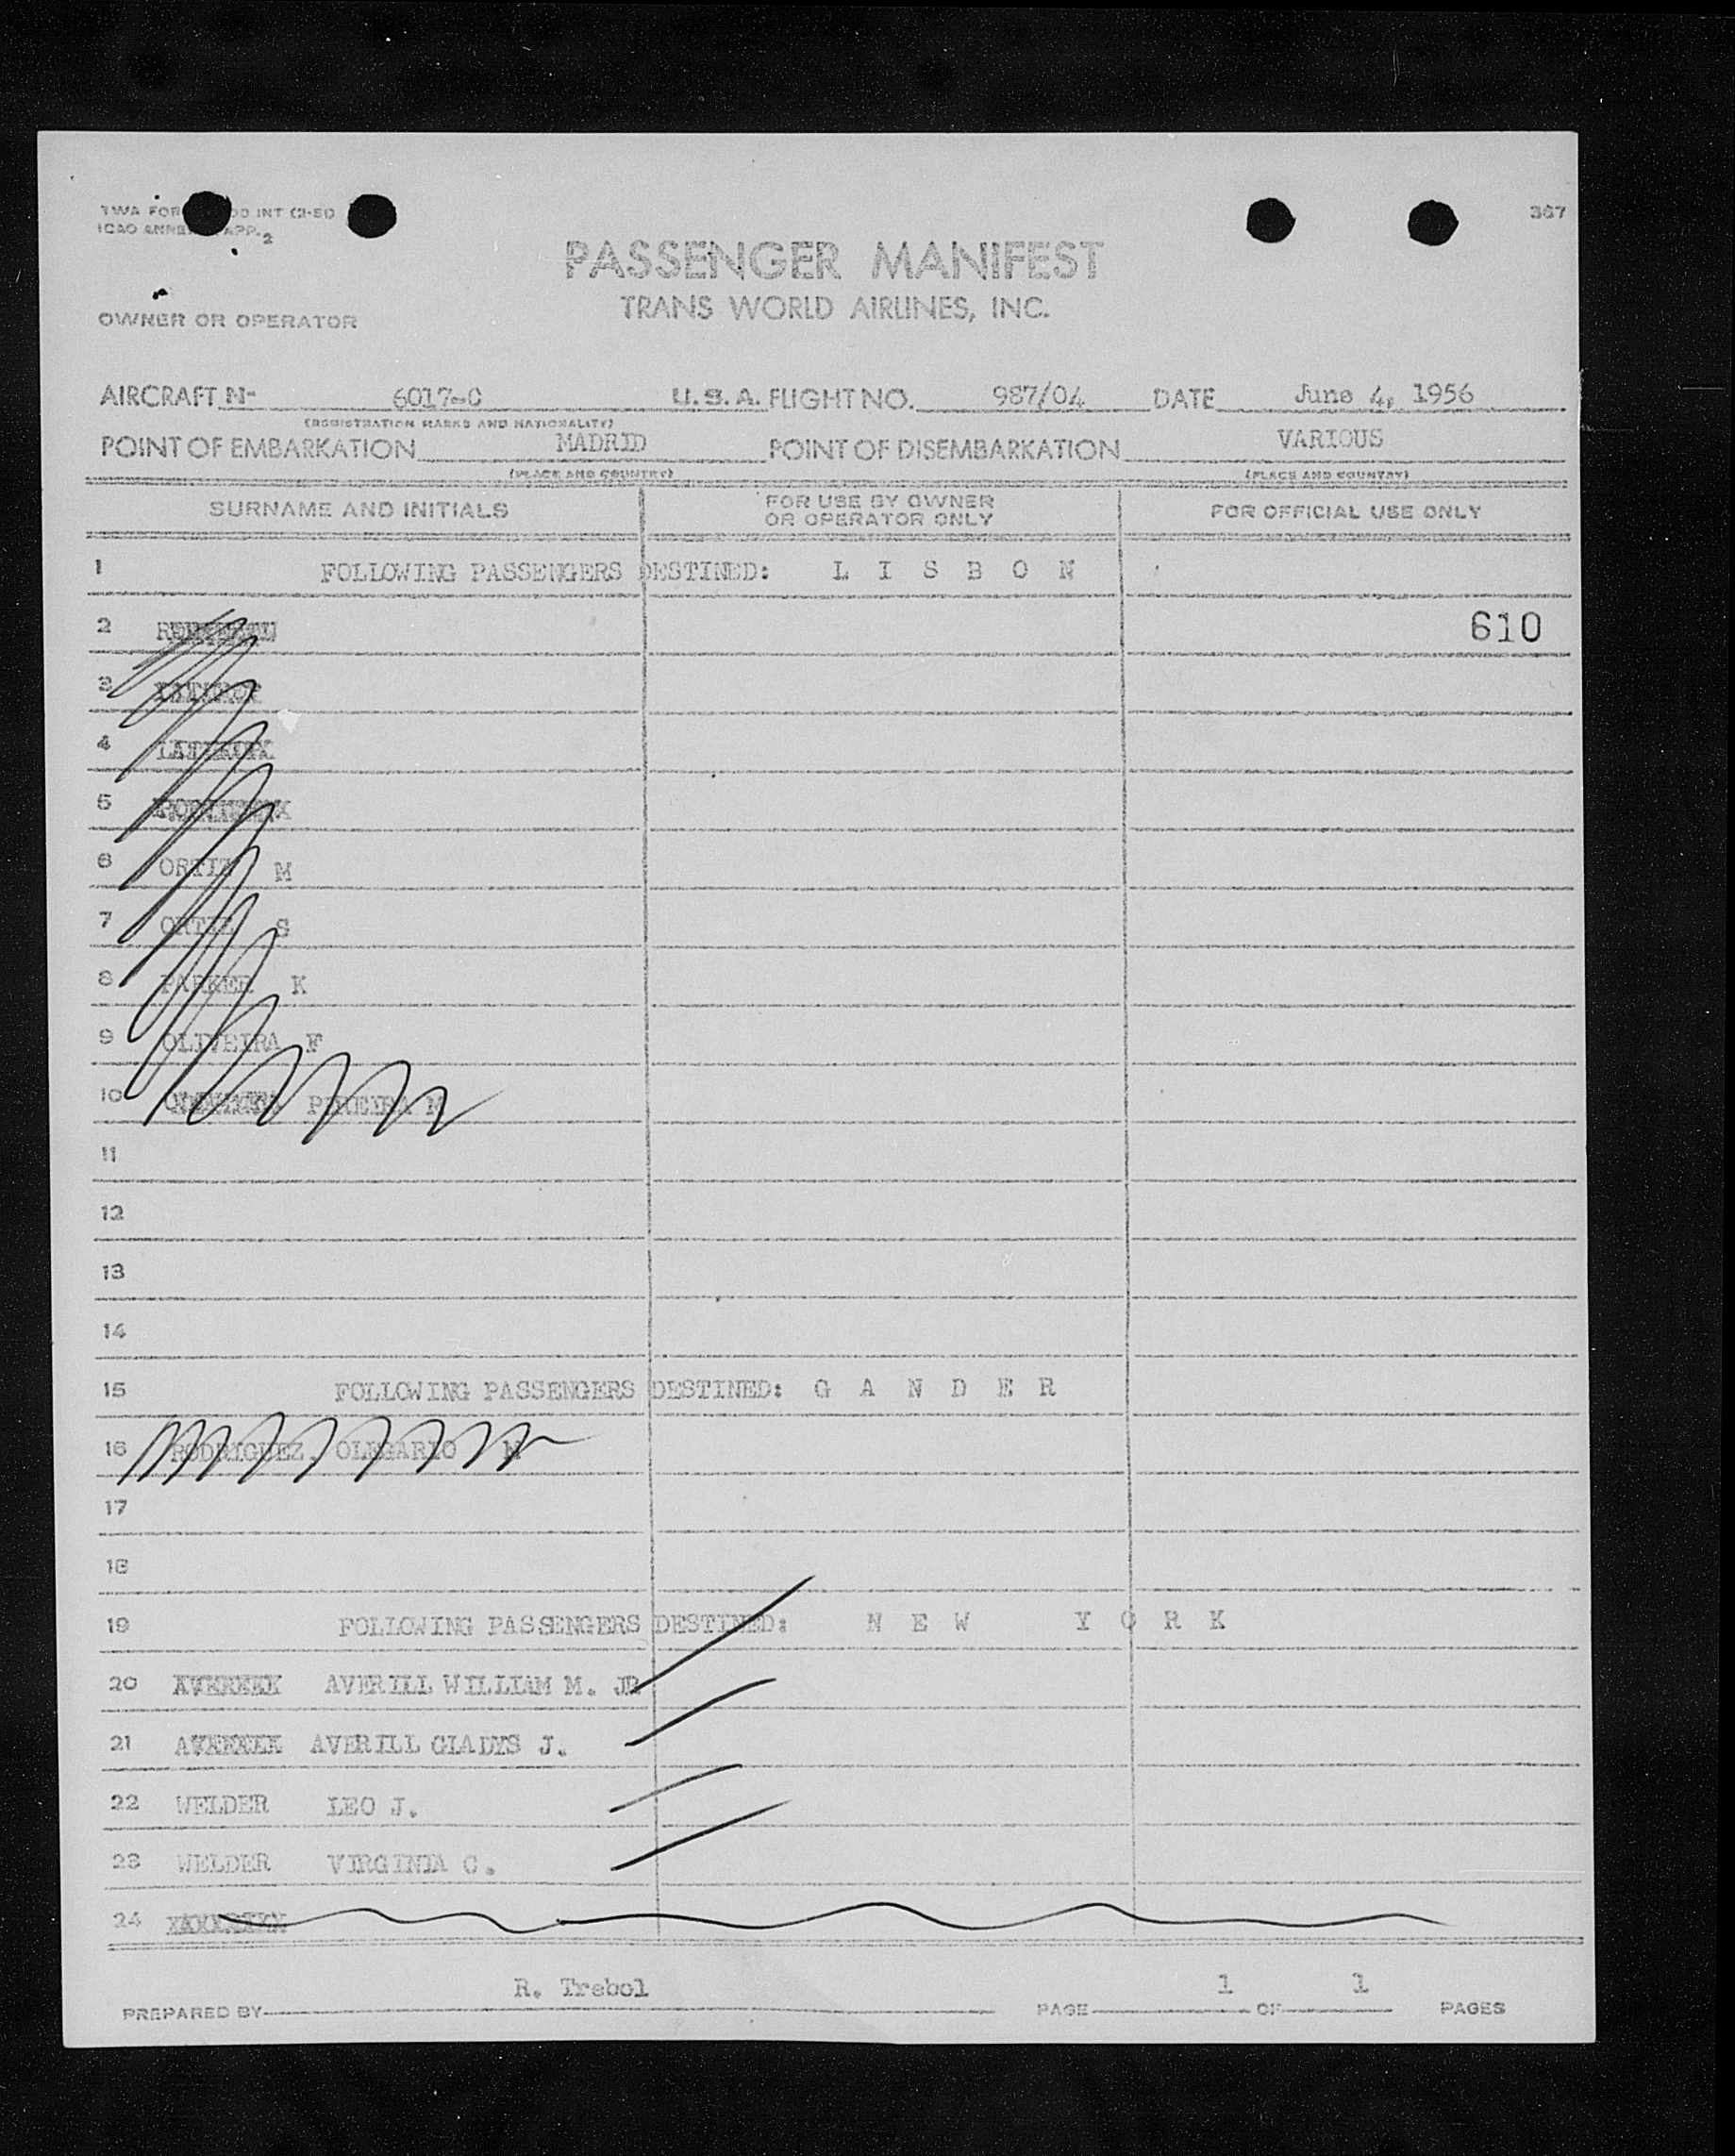 367
ICAO
PASSENGER MANIFEST
TRANS WORLD AIRLINES, INC.
OWNER OR OPERATOR
AIRCRAFT N- 6017-C U.S.A. FLIGHT NO. 987/04 DATE June 4, 1956
(REGISTRATION MARKS AND NATIONALITY)
POINT OF EMBARKATION MADRID POINT OF DISEMBARKATION VARIOUS
(PLACE AND COUNTRY) (PLACE AND COUNTRY)
SURNAME AND INITIALS FOR USE BY OWNER OR OPERATOR ONLY FOR OFFICIAL USE ONLY
1 FOLLOWING PASSENGERS DESTINED: L I S B O N
2 610
3
4
5
6 ORTIZ M
7 ORTIZ S
8 PARKER K
9 OLIVEIRA F
10 PEREIRA M
11
12
13
14
15 FOLLOWING PASSENGERS DESTINED: G A N D E R
16 RODRIGUEZ, OLEGARIO
17
18
19 FOLLOWING PASSENGERS DESTINED: N E W Y O R K
20 AVERILL WILLIAM M. JR
21 AVERILL GLADYS J.
22 WELDER LEO J.
23 WELDER VIRGINIA C.
24
PREPARED BY R. Trebol PAGE 1 OF 1 PAGES